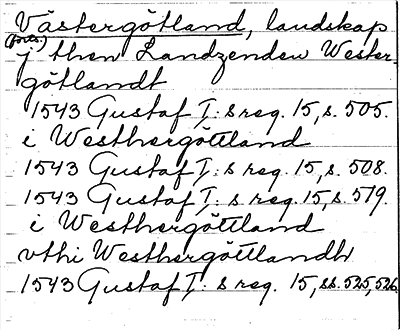 Västergötland, landskap
(forts.)
j then Landzenden Wester-
götlandt
1543 Gustaf I: s reg. 15, s. 505.
i Westhergöttland
1543 Gustaf I: s reg. 15, s. 508.
1543 Gustaf I: s reg. 15, s. 519.
i Westhergöttland
vthi Westhergöttlandh
1543 Gustaf I: s reg. 15, ss. 525, 526.